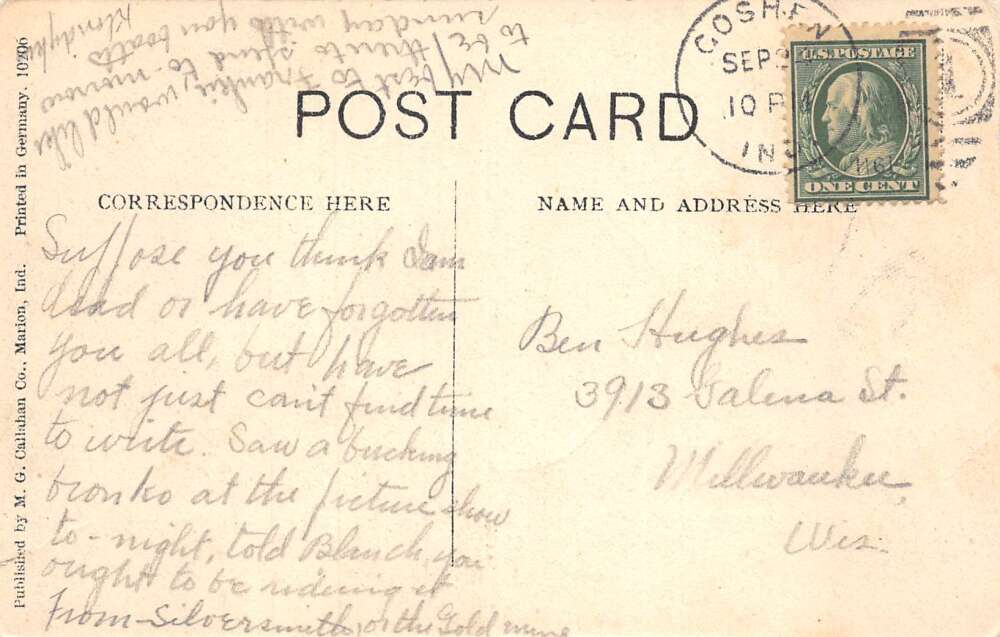 POST CARD
CORRESPONDENCE HERE
NAME AND ADDRESS HERE
Published by M. G. Callahan Co., Marion, Ind. Printed in Germany. 10206
GOSHEN
SEP
10 P
IND
U.S. POSTAGE
ONE CENT
Suppose you think I am
dead or have forgotten
you all, but have
not just can't find time
to write. Saw a bucking
bronko at the picture show
to-night, told Blanch you
ought to be rideing it
From-Silversmith, or the Gold mine
my best to Frankie, would like
to be there to spend to-morrow
sunday with you boath
Ben Hughes
3913 Galena St.
Millwaukee,
Wis.